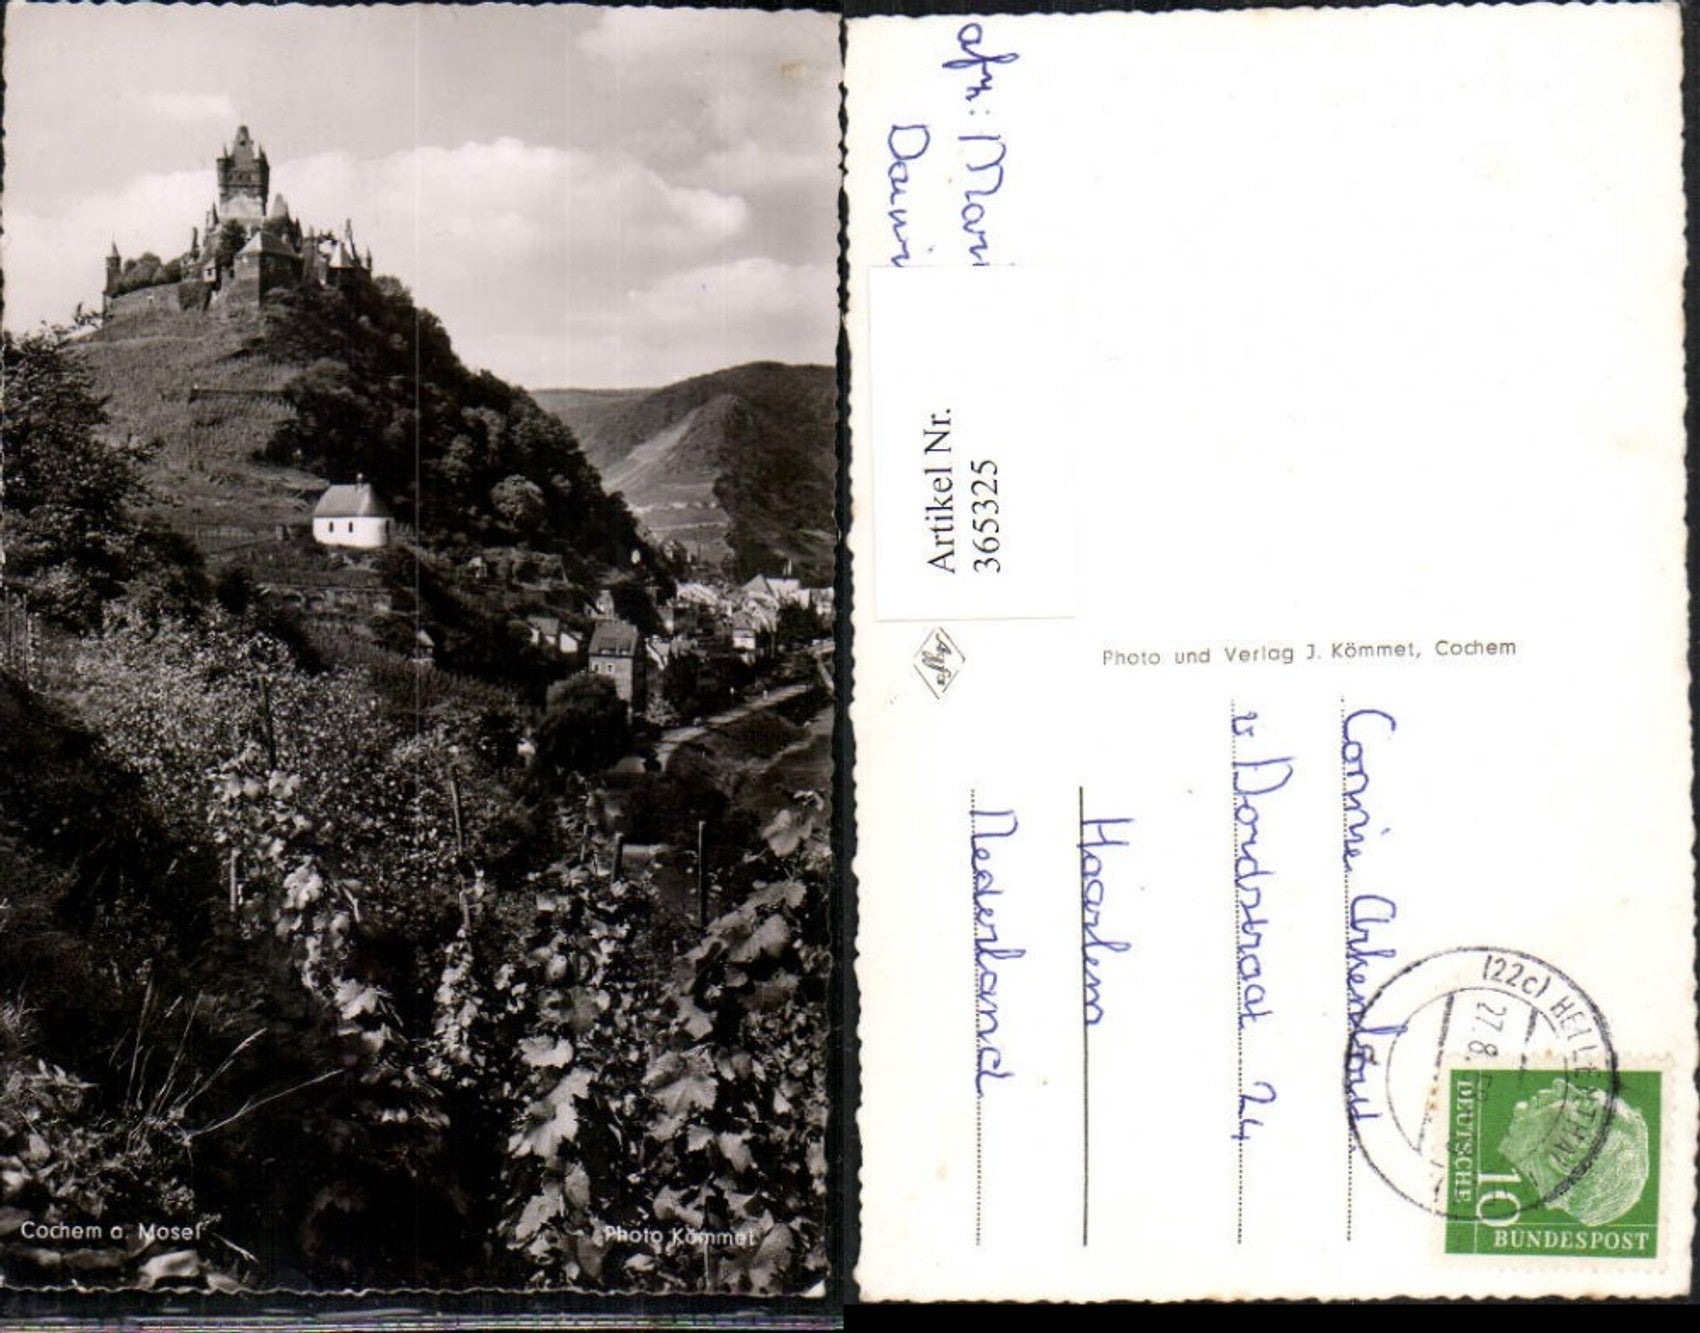 Cochem a. Mosel
Photo Kömmet
afz: Mari
Danni
Artikel Nr.
3653325
Agfa
Photo und Verlag J. Kömmet, Cochem
Corrie Arkenbout
v Dordstraat 24
Haarlem
Nederland
(22c) HELLENTHAL
27.8.
DEUTSCHE
10
BUNDESPOST